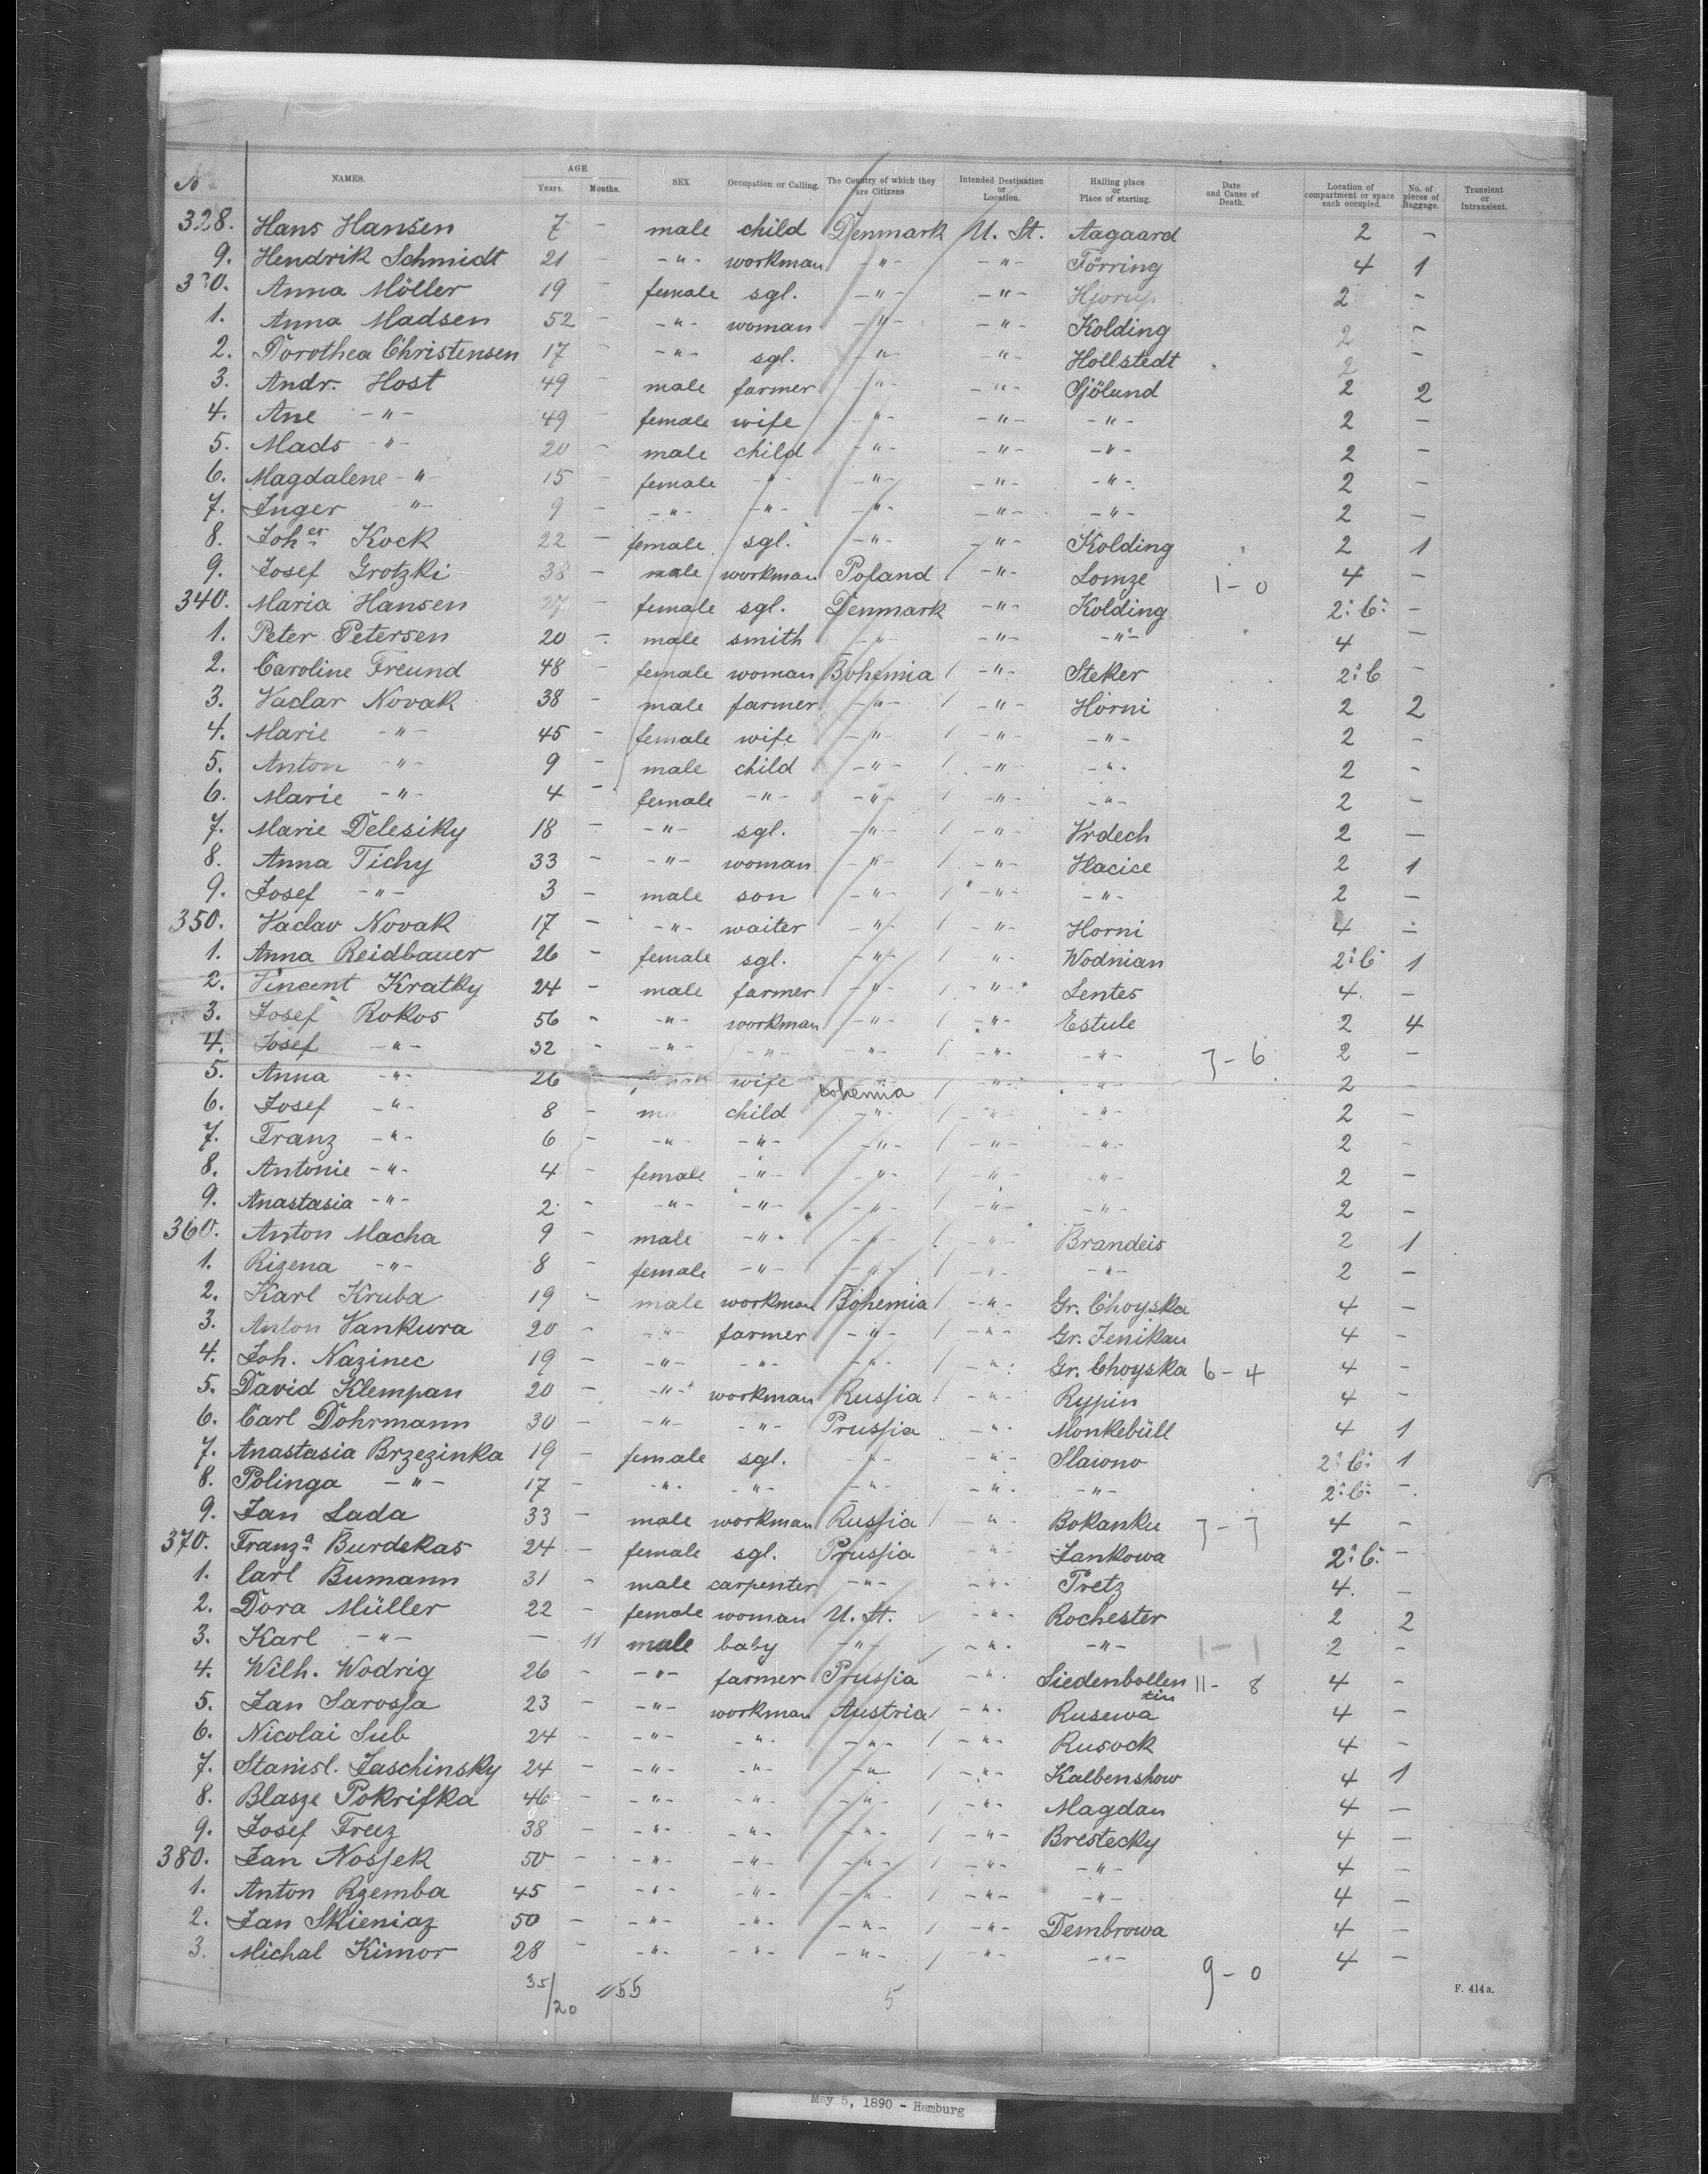 No. NAMES. AGE Years. Months. SEX Occupation or Calling. The Country of which they are Citizens Intended Destination or Location. Hailing place or Place of starting. Date and Cause of Death. Location of compartment or space each occupied. No. of pieces of Baggage. Transient or Intransient.
328. Hans Hansen 7 - male child Denmark U. St. Aagaard 2 -
9. Hendrik Schmidt 21 - -"- workman -"- -"- Törring 4 1
330. Anna Möller 19 - female sgl. -"- -"- Hjorup 2 -
1. Anna Madsen 52 - -"- woman -"- -"- Kolding 2 -
2. Dorothea Christensen 17 - -"- sgl. -"- -"- Hollstedt 2 -
3. Andr. Host 49 - male farmer -"- -"- Sjölund 2 2
4. Ane -"- 49 - female wife -"- -"- -"- 2 -
5. Mads -"- 20 - male child -"- -"- -"- 2 -
6. Magdalene -"- 15 - female -"- -"- -"- -"- 2 -
7. Inger -"- 9 - -"- -"- -"- -"- -"- 2 -
8. Joh.es Kock 22 - female sgl. -"- -"- Kolding 2 1
9. Josef Grotzki 38 - male workman Poland / -"- Lomze 1-0 4 -
340. Maria Hansen 27 - female sgl. Denmark -"- Kolding 2:C: -
1. Peter Petersen 20 - male smith -"- -"- -"- 4 -
2. Caroline Freund 48 - female woman Bohemia / -"- Steker 2:C -
3. Vaclav Novak 38 - male farmer -"- / -"- Horni 2 2
4. Marie -"- 45 - female wife -"- / -"- -"- 2 -
5. Anton -"- 9 - male child -"- / -"- -"- 2 -
6. Marie -"- 4 - female -"- -"- / -"- -"- 2 -
7. Marie Delesiky 18 - -"- sgl. -"- / -"- Vrdech 2 -
8. Anna Tichy 33 - -"- woman -"- / -"- Hacice 2 1
9. Josef -"- 3 - male son -"- / -"- -"- 2 -
350. Vaclav Novak 17 - -"- waiter -"- / -"- Horni 4 -
1. Anna Reidbauer 26 - female sgl. -"- / -"- Wodnian 2:C 1
2. Vincent Kratky 24 - male farmer -"- / -"- Lentes 4. -
3. Josef Rokos 56 - -"- workman -"- / -"- Estule 2 4
4. Josef -"- 32 - -"- -"- -"- / -"- -"- 7-6 2 -
5. Anna -"- 26 - wife Bohemia / -"- -"- 2 -
6. Josef -"- 8 - child -"- / -"- -"- 2 -
7. Franz -"- 6 - -"- -"- -"- / -"- -"- 2 -
8. Antonie -"- 4 - female -"- -"- / -"- -"- 2 -
9. Anastasia -"- 2 - -"- -"- -"- / -"- -"- 2 -
360. Anton Macha 9 - male -"- -"- / -"- Brandeis 2 1
1. Rizena -"- 8 - female -"- -"- / -"- -"- 2 -
2. Karl Kruba 19 - male workman Bohemia / -"- Gr. Choyska 4 -
3. Anton Vankura 20 - -"- farmer -"- / -"- Gr. Jenikau 4 -
4. Joh. Nazinec 19 - -"- -"- -"- / -"- Gr. Choyska 6-4 4 -
5. David Klempan 20 - -"- workman Russia / -"- Rypin 4 -
6. Carl Dohrmann 30 - -"- -"- Prussia -"- Monkebüll 4 1
7. Anastasia Brzezinka 19 - female sgl. -"- -"- Slawno 2:C: 1
8. Polinga -"- 17 - -"- -"- -"- -"- -"- 2:C: -
9. Jan Lada 33 - male workman Russia / -"- Bokanku 7-7 4 -
370. Franz.a Burdekas 24 - female sgl. Prussia -"- Jankowa 2:C: -
1. Carl Bumann 31 - male carpenter -"- -"- Pretz 4. -
2. Dora Müller 22 - female woman U. St. -"- Rochester 2 2
3. Karl -"- - 11 male baby -"- -"- -"- 1-1 2 -
4. Wilh. Wodrig 26 - -"- farmer Prussia -"- Siedenbollentin 11-8 4 -
5. Jan Sarossa 23 - -"- workman Austria / -"- Rusewa 4 -
6. Nicolai Sub 24 - -"- -"- -"- / -"- Rusock 4 -
7. Stanisl. Jaschinsky 24 - -"- -"- -"- / -"- Kalbenshow 4 1
8. Blasze Pokrifka 46 - -"- -"- -"- / -"- Magdan 4 -
9. Josef Freez 38 - -"- -"- -"- / -"- Brestecky 4 -
380. Jan Nossek 50 - -"- -"- -"- / -"- -"- 4 -
1. Anton Rzemba 45 - -"- -"- -"- / -"- -"- 4 -
2. Jan Skieniaz 50 - -"- -"- -"- / -"- Dembrowa 4 -
3. Michal Kimor 28 - -"- -"- -"- / -"- -"- 4 -
35/20 55 5 9-0
F. 414a.
May 5, 1890 - Hamburg